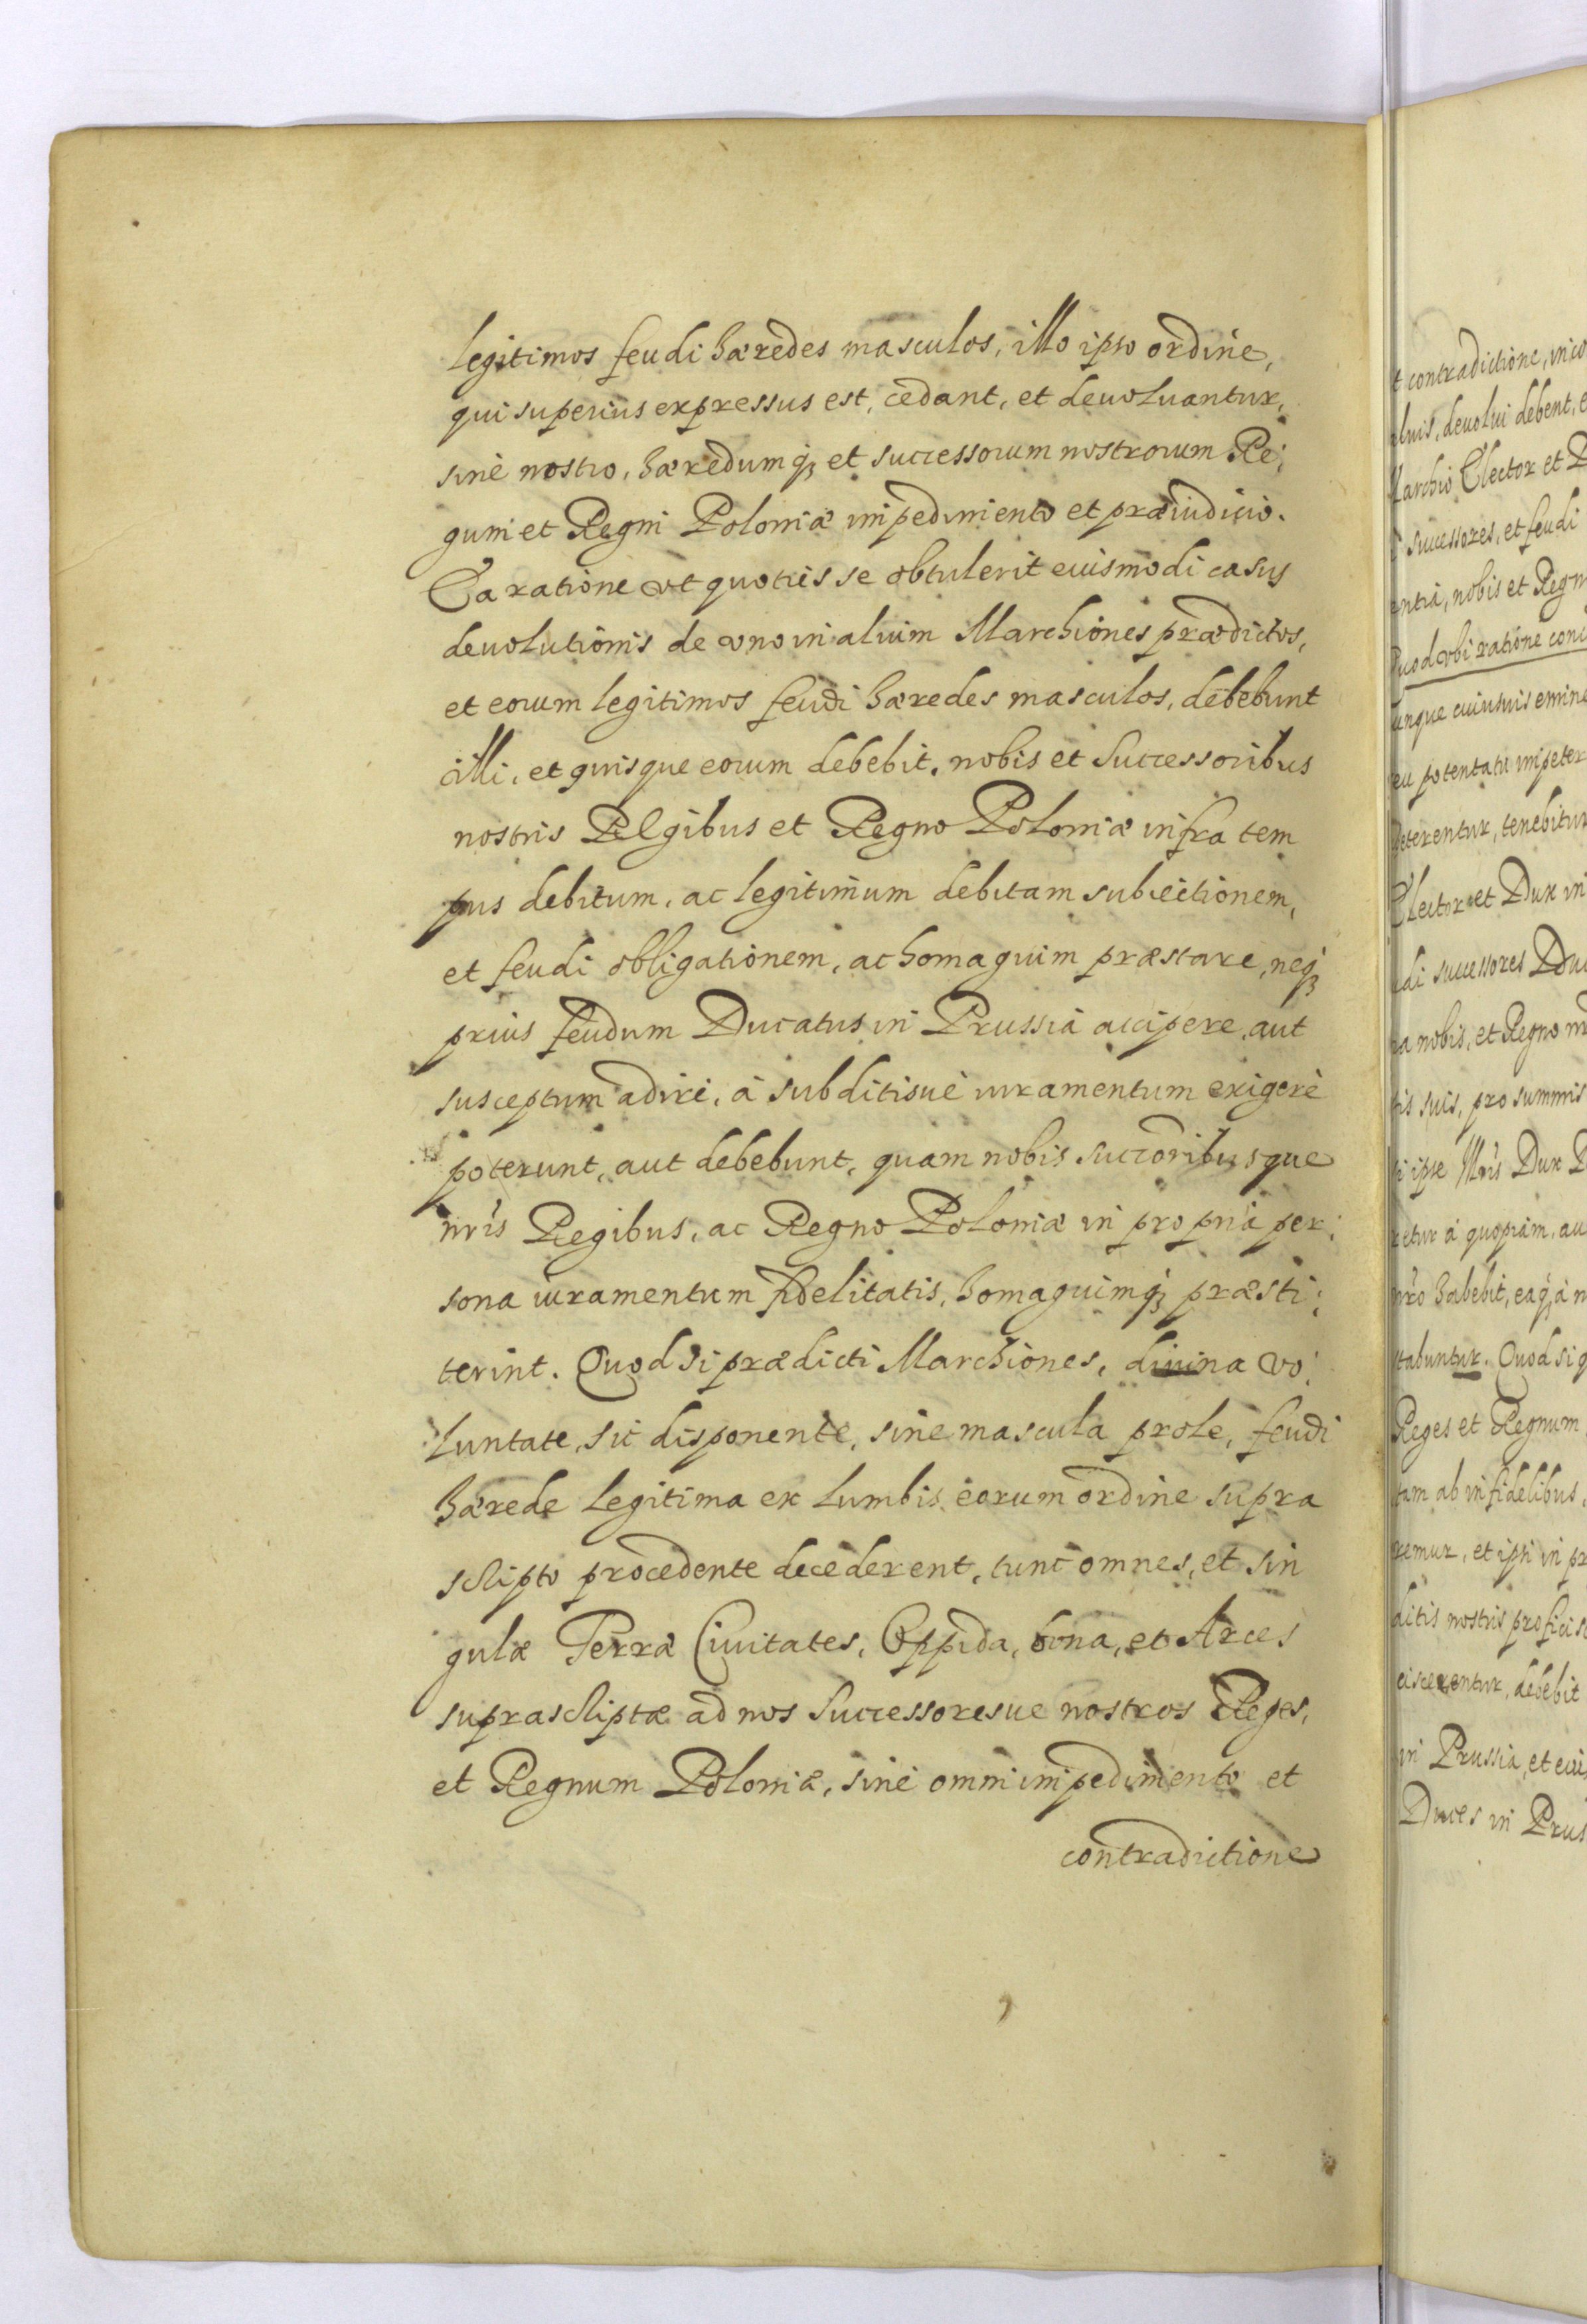 legitimos feudi hæredes masculos, illo ipso ordine,
qui superius expressus est, cedant, et deuoluantur,
sine nostro, hæredumq; et successorum nostrorum Re:
gum et Regni Poloniæ impedimento et præiudicio.
Ea ratione vt quoties se obtulerit euismodi casus
deuolutionis de vno in alium Marchiones prædictos,
et eorum legitimos feudi hæredes masculos, debebunt
illi, et quisque eorum debebit, nobis et Successoribus
nostris Regibus et Regno Poloniæ infra tem
pus debitum, ac legitimum debitam subiectionem,
et feudi obligationem, ac homagium præstare, neq;
prius feudum Ducatus in Prussia accipere, aut
susceptum adire, à subditisue iuramentum exigere
poterunt, aut debebunt, quam nobis succoribusque
nr̃is Regibus, ac Regno Poloniæ in propria per:
sona iuramentum fidelitatis, homagiumq; præsti:
terint. Quod si prædicti Marchiones, diuina vo:
luntate, sic disponente, sine mascula prole, feudi
hærede legitima ex lumbis eorum ordine supra
scripto procedente decederent, tunc omnes, et sin
gulæ Terræ Ciuitates, Oppida, bona, et Arces
suprascriptæ ad nos Successoresue nostros Reges,
et Regnum Poloniæ, sine omni impedimento et
contradictione
t contradictione,
deuolui debent,
Marchio Elector et
successores, et feudi
nobis et Regn
Quod vbi ratione
cuiusuis
potentatu
tenebitur
Elector et Dux in
di successores
nobis, et Regno
tis suis, pro summis
ipse Illr̃is Dux
etur à quopiam, au
nr̃o habebit, eaq; à
tabuntur. Quod si q
Reges et Regnum
tam ab infidelibus,
remur, et ipsi in pr
ditis nostris
debebit
in Prussia, et
Duces in Prus